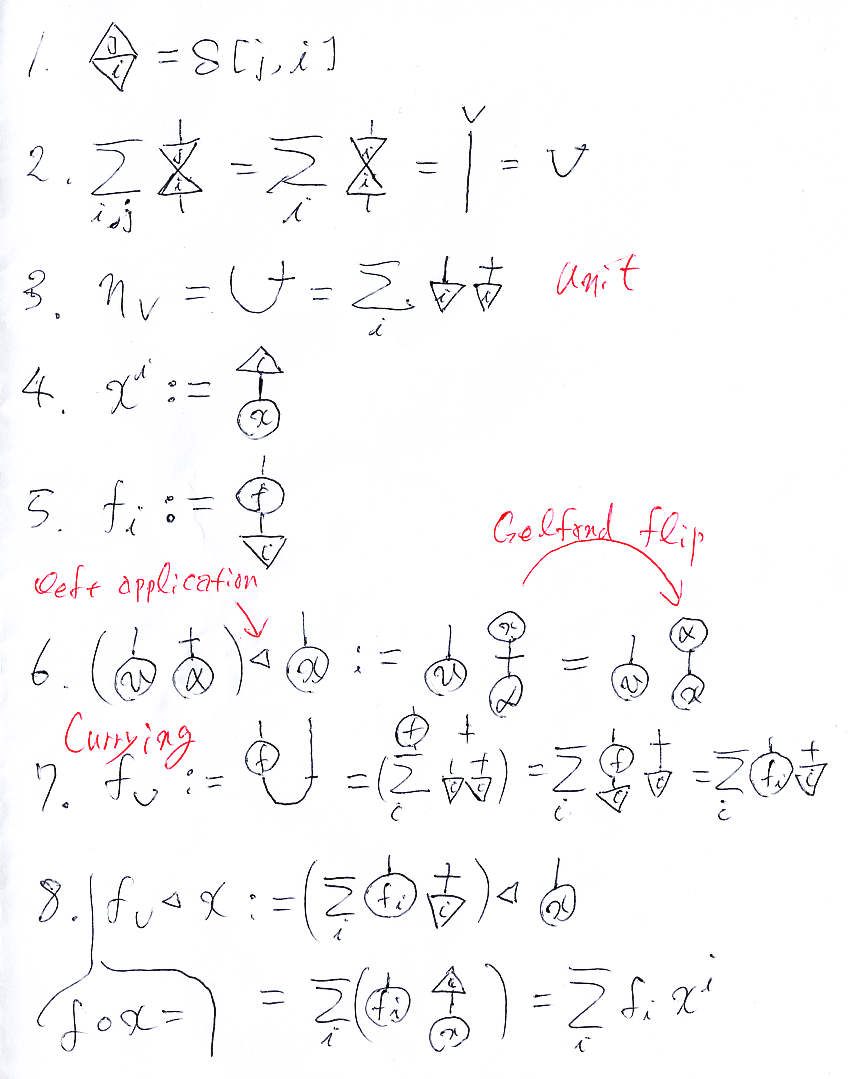 1. j i = δ[j,i]
2. ∑ i,j j i = ∑ i i i = | V = V
3. η_V = ∪ = ∑ i i i unit
4. x^i := i x
5. f_i := f i
left application Gelfand flip
6. (v α) ◁ x := v x α = v α x
Currying
7. f_∪ := f ∪ = (∑ i f i i) = ∑ i f i i = ∑ i f_i i
8. f_∪ ◁ x := (∑ i f_i i) ◁ x
f∘x = = ∑ i (f_i i x) = ∑ i f_i x^i